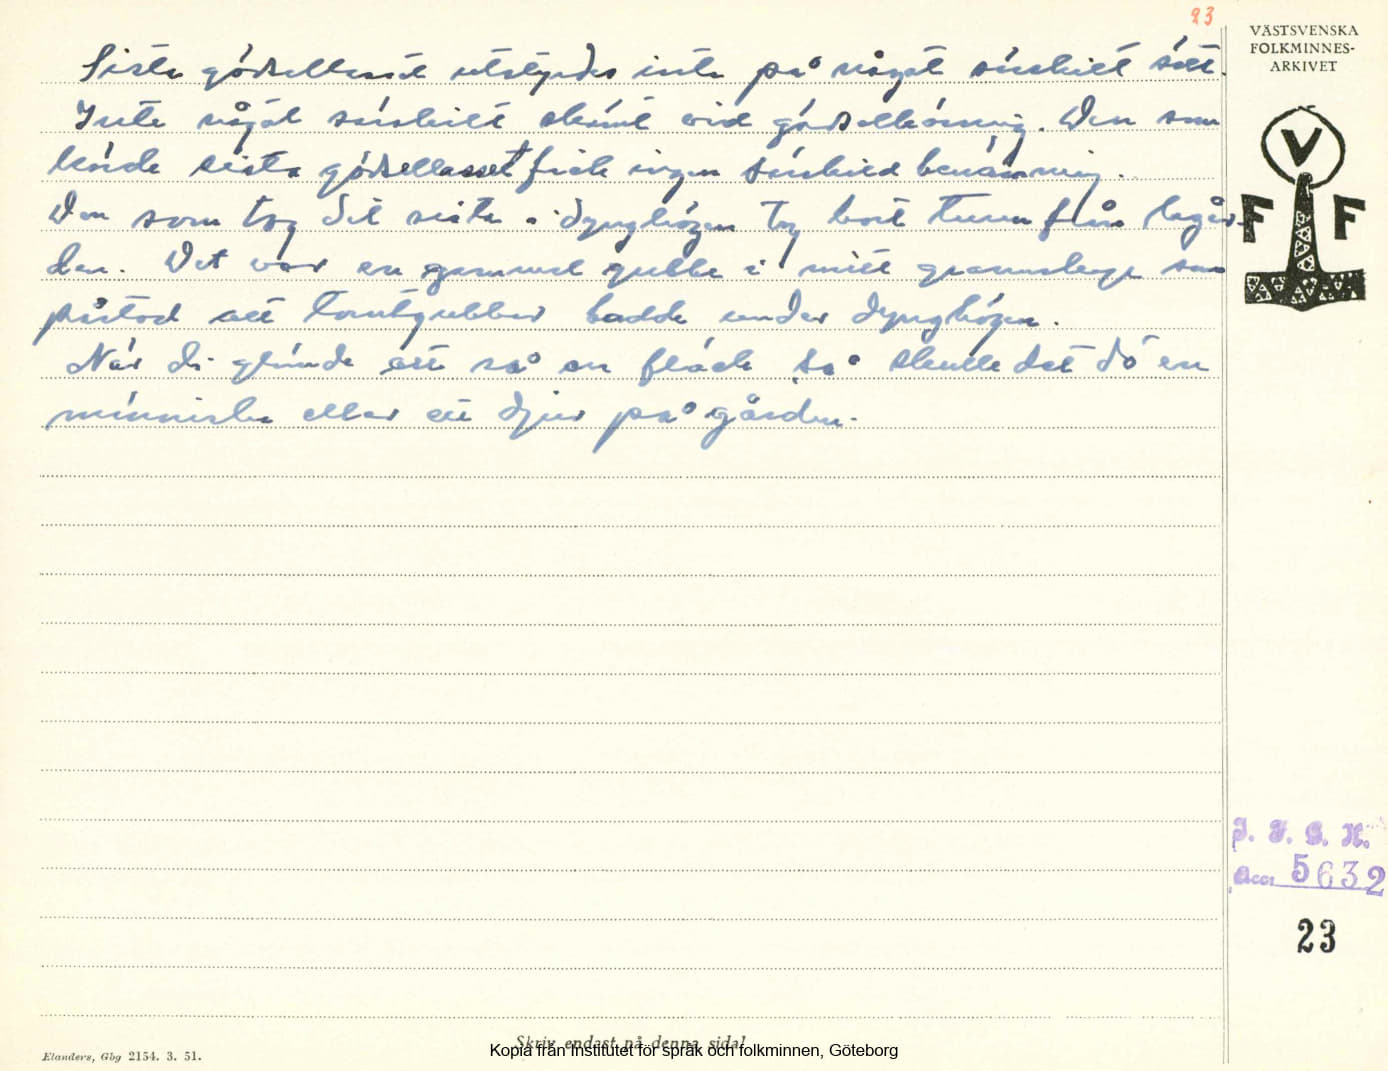 23
VÄSTSVENSKA
FOLKMINNES-
ARKIVET
V
F F
Sista gödsellasset utstyrdes inte på något särskilt sätt.
Inte något särskilt skämt vid gödselkörning. Den som
körde sista gödsellasset fick ingen särskild benämning.
Den som tog det sista i dynghögen tog bort turen från lagår-
den. Det var en gammal gubbe i mitt grannskap som
påstod att tomtgubbar bodde under dynghögen.
När di glömde att så en fläck så skulle det dö en
människa eller ett djur på gården.
I. F. G. H.
Acc. 5632
23
Elanders, Gbg 2154. 3. 51.
Skriv endast på denna sida!
Kopia från Institutet för språk och folkminnen, Göteborg